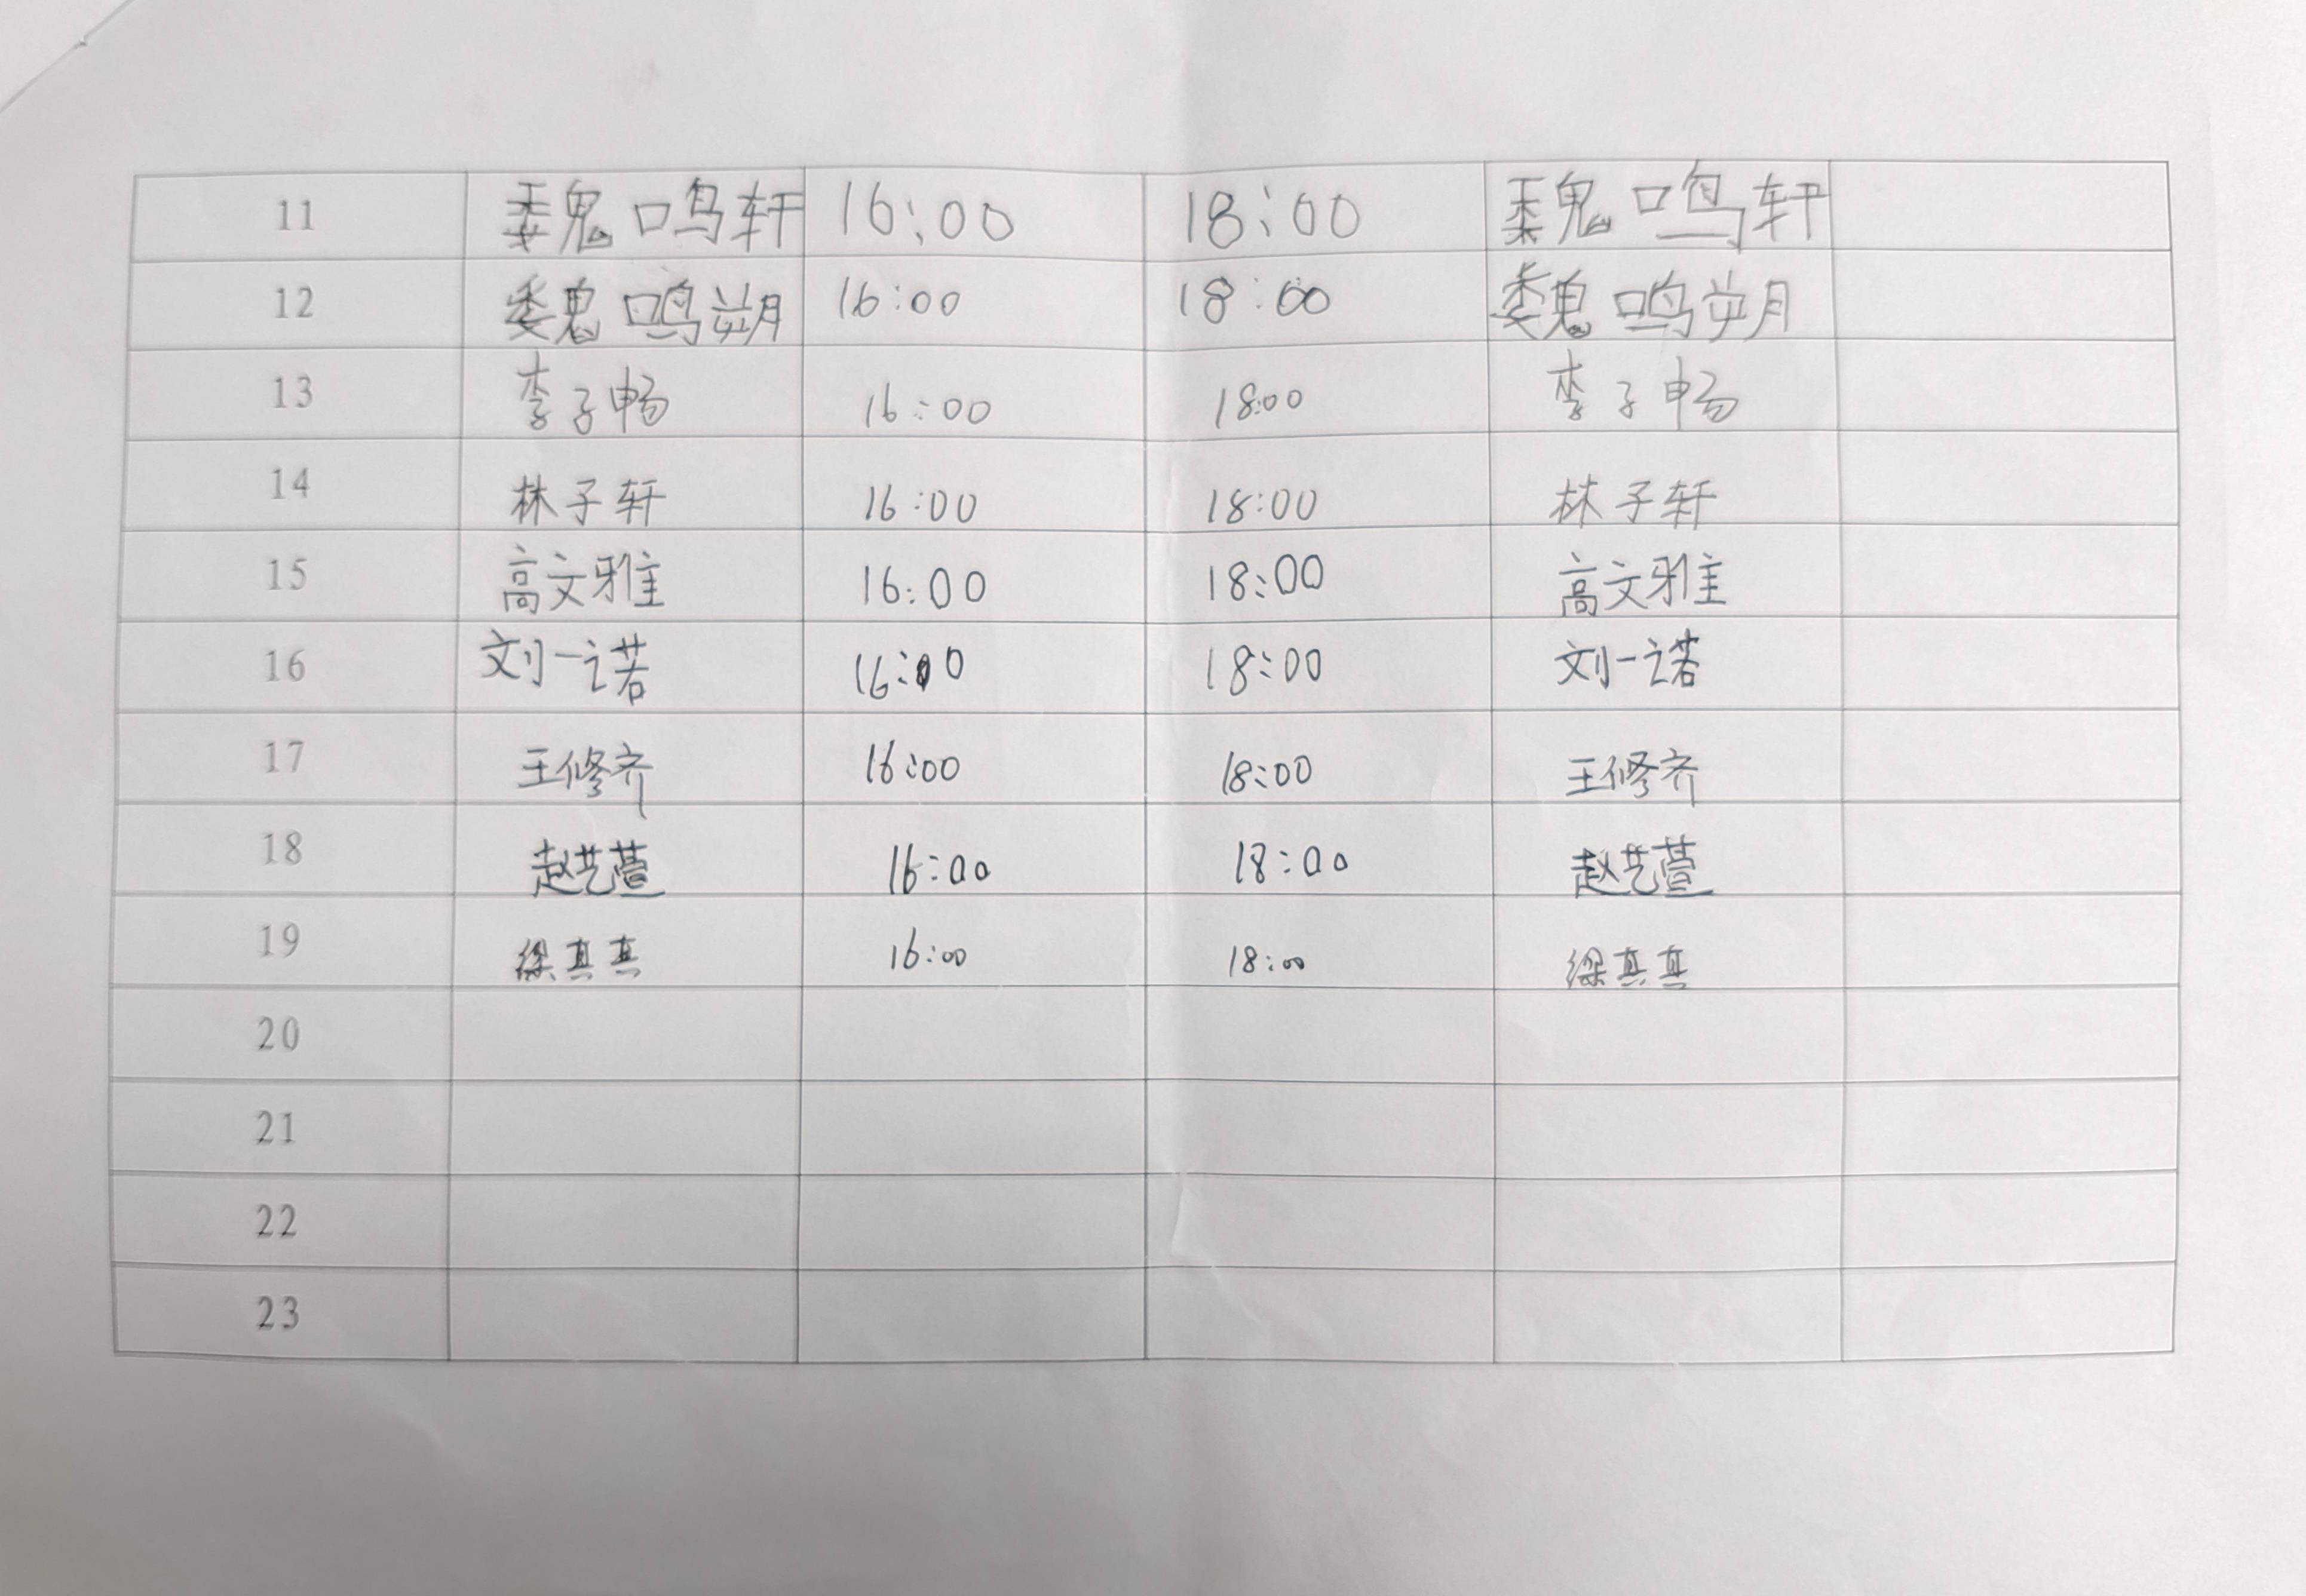 11 魏鸣轩 16:00 18:00 魏鸣轩
12 魏鸣朔 16:00 18:00 魏鸣朔
13 李子畅 16:00 18:00 李子畅
14 林子轩 16:00 18:00 林子轩
15 高文雅 16:00 18:00 高文雅
16 刘一诺 16:00 18:00 刘一诺
17 王修齐 16:00 18:00 王修齐
18 赵艺萱 16:00 18:00 赵艺萱
19 徐真真 16:00 18:00 徐真真
20
21
22
23